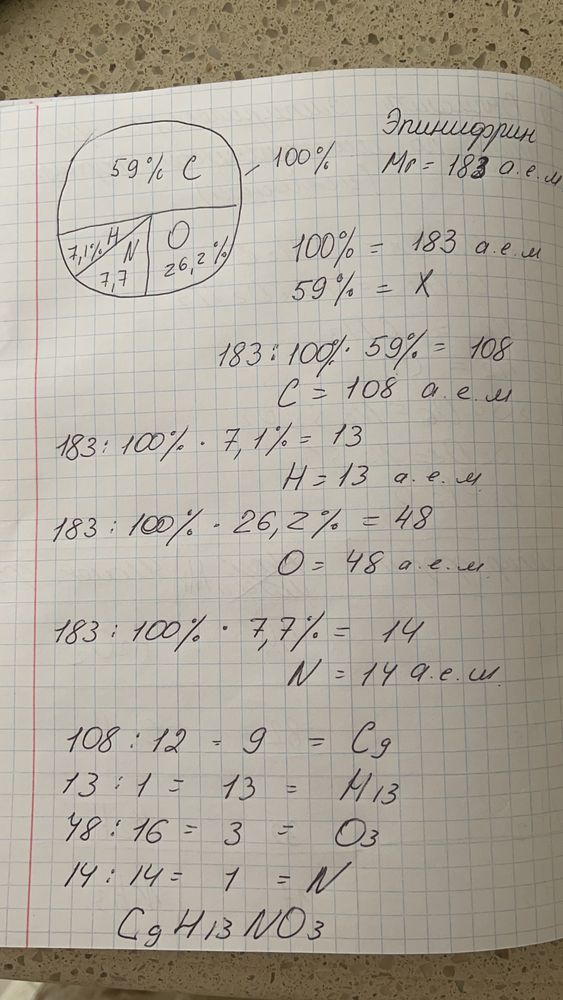 Эпинифрин
59% C
100%
Mr = 183 а.е.м
7,1% H
N
7,7
O
26,2%
100% = 183 а.е.м
59% = X
183 : 100% · 59% = 108
C = 108 а.е.м
183 : 100% · 7,1% = 13
H = 13 а.е.м
183 : 100% · 26,2% = 48
O = 48 а.е.м
183 : 100% · 7,7% = 14
N = 14 а.е.м
108 : 12 = 9 = C9
13 : 1 = 13 = H13
48 : 16 = 3 = O3
14 : 14 = 1 = N
C9H13NO3